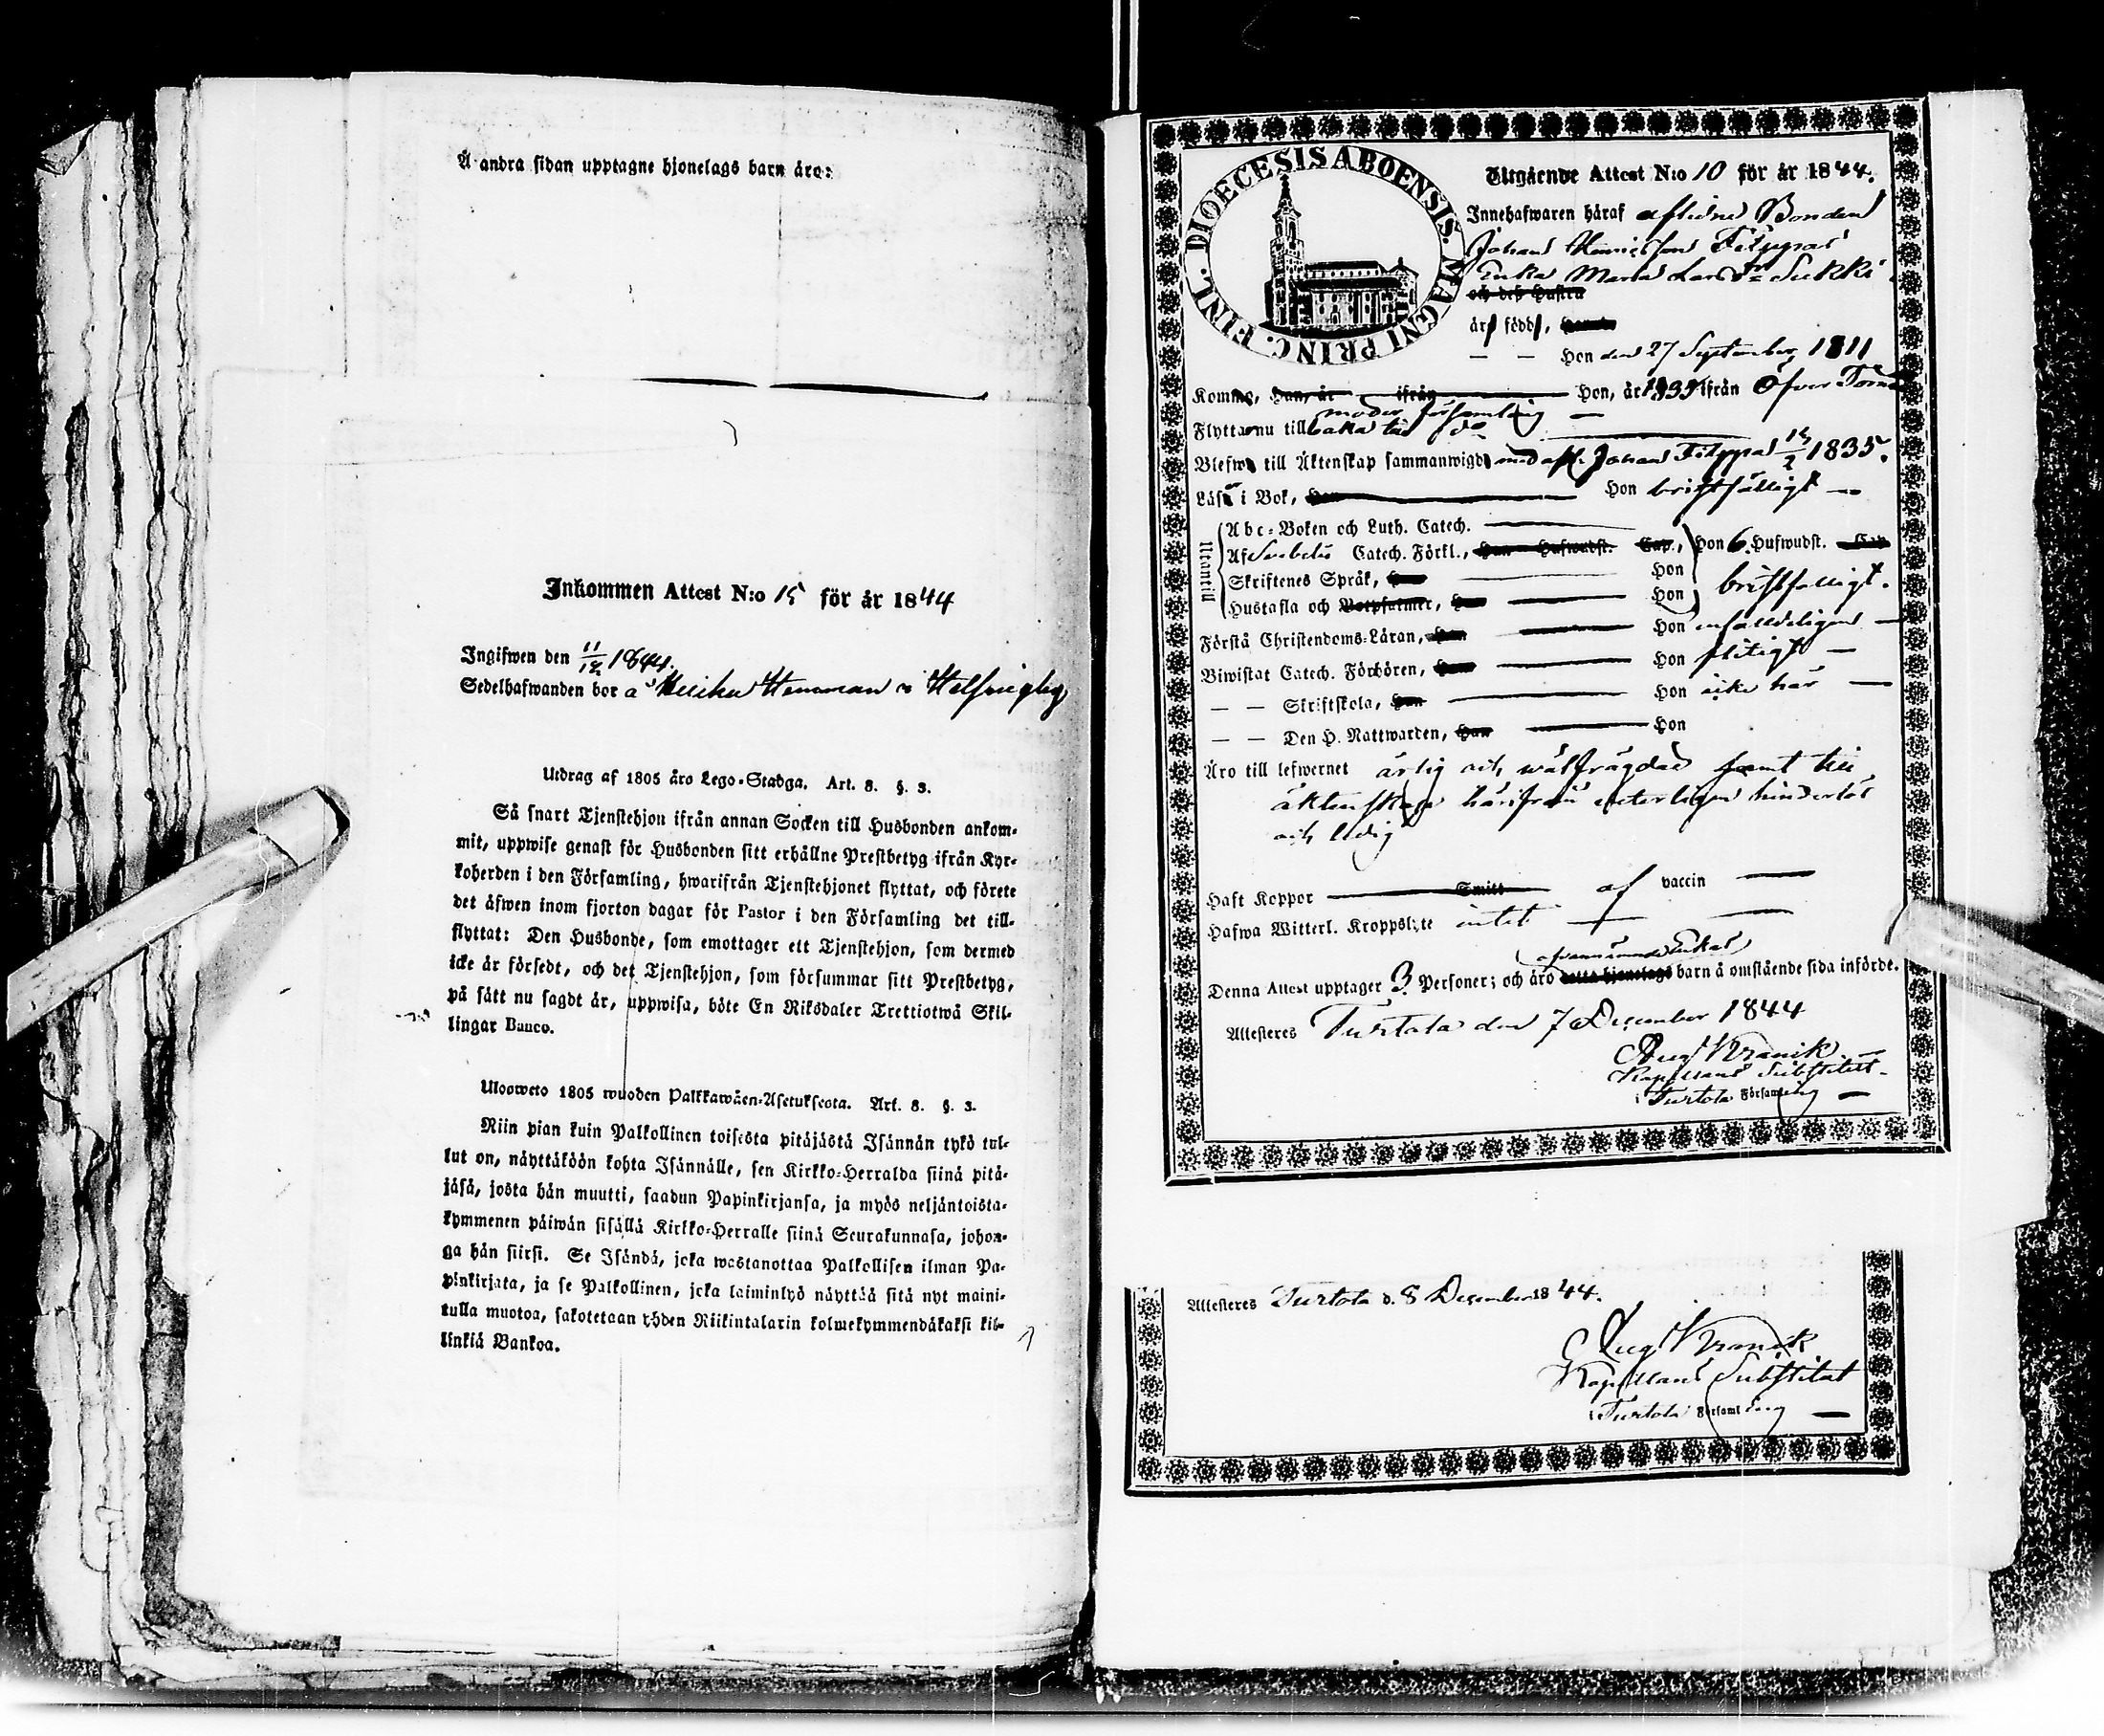 Å andra sidan upptagne hjonelags barn äro:
Inkommen Attest N:o 15 för år 1844
Ingifwen den 11/12 1844.
Sedelhafwanden bor å Heiska Hemman i Helsingby
Utdrag af 1805 års Lego-Stadga. Art. 8. §. 3.
Så snart Tjenstehjon ifrån annan Socken till Husbonden ankom-
mit, uppwise genast för Husbonden sitt erhållne Prestbetyg ifrån Kyr-
koherden i den Församling, hwarifrån Tjenstehjonet flyttat, och förete
det äfwen inom fjorton dagar för Pastor i den Församling det till-
flyttat: Den Husbonde, som emottager ett Tjenstehjon, som dermed
icke är försedt, och det Tjenstehjon, som försummar sitt Prestbetyg,
på sätt nu sagdt är, uppwisa, böte En Riksdaler Trettiotwå Skil-
lingar Banco.
Uloosweto 1805 wuoden Palkkawäen-Asetuksesta. Art. 8. §. 3.
Niin pian kuin Palkollinen toisesta pitäjästä Isännän tykö tul-
lut on, näyttäköön kohta Isännälle, sen Kirkko-Herralda siinä pitä-
jäsä, josta hän muutti, saadun Papinkirjansa, ja myös neljäntoista-
kymmenen päiwän sisällä Kirkko-Herralle siinä Seurakunnasa, johon-
ga hän siirsi. Se Isändä, joka wastanottaa Palkollisen ilman Pa-
pinkirjata, ja se Palkollinen, joka laiminlyö näyttää sitä nyt maini-
tulla muotoa, sakotetaan yhden Riikintalarin kolmekymmendäkaksi kil-
linkiä Bankoa.
DIOECESIS ABOENSIS. MAGNI PRINC. FINL.
Utgående Attest N:o 10 för år 1844.
Innehafwaren häraf aflidne Bonden
Johan Henricsson Filppas
Enka Maria Larsdr Sukki
och dess Hustru
är född,
— — Hon den 27 September 1811
Komme, Han, år ifrån Hon, år 1835 ifrån Öfver Torneå
moder församling
Flytta nu tillbaka till do
Blefwo till Äktenskap sammanwigde med afl. Johan Filppa 15/2 1835.
Läsa i Bok, Han Hon bristfälligt
Utantill
Abc-Boken och Luth. Catech.
Af Svebelii Catech. Förkl., Han Hufwudst. Cap., Hon 6. Hufwudst. Cap
Skriftenes Språk, Han Hon bristfälligt.
Hustafla och Botpsalmer, Han Hon
Förstå Christendoms-Läran, Han Hon enfaldeligen
Biwistat Catech. Förhören, Han Hon flitigt
— — Skriftskola, Han Hon icke här
— — Den H. Nattwarden, Han Hon
Äro till lefwernet ärlig och wälfrägdad samt till
äktenskap härifrån hinderlös
och ledig
Haft Koppor Smitt af vaccin
Hafwa Witterl. Kroppslyte intet
ofvannämnda Enkas
Denna Attest upptager 3 Personer; och äro detta hjonelags barn å omstående sida införde.
Attesteres Turtola den 7 December 1844
Aug Kranck
Kapellans Substitut
i Turtola Församling
Attesteres Turtola d. 8 December 1844.
Aug Kranck
Kapellans Substitut
i Turtola Församling